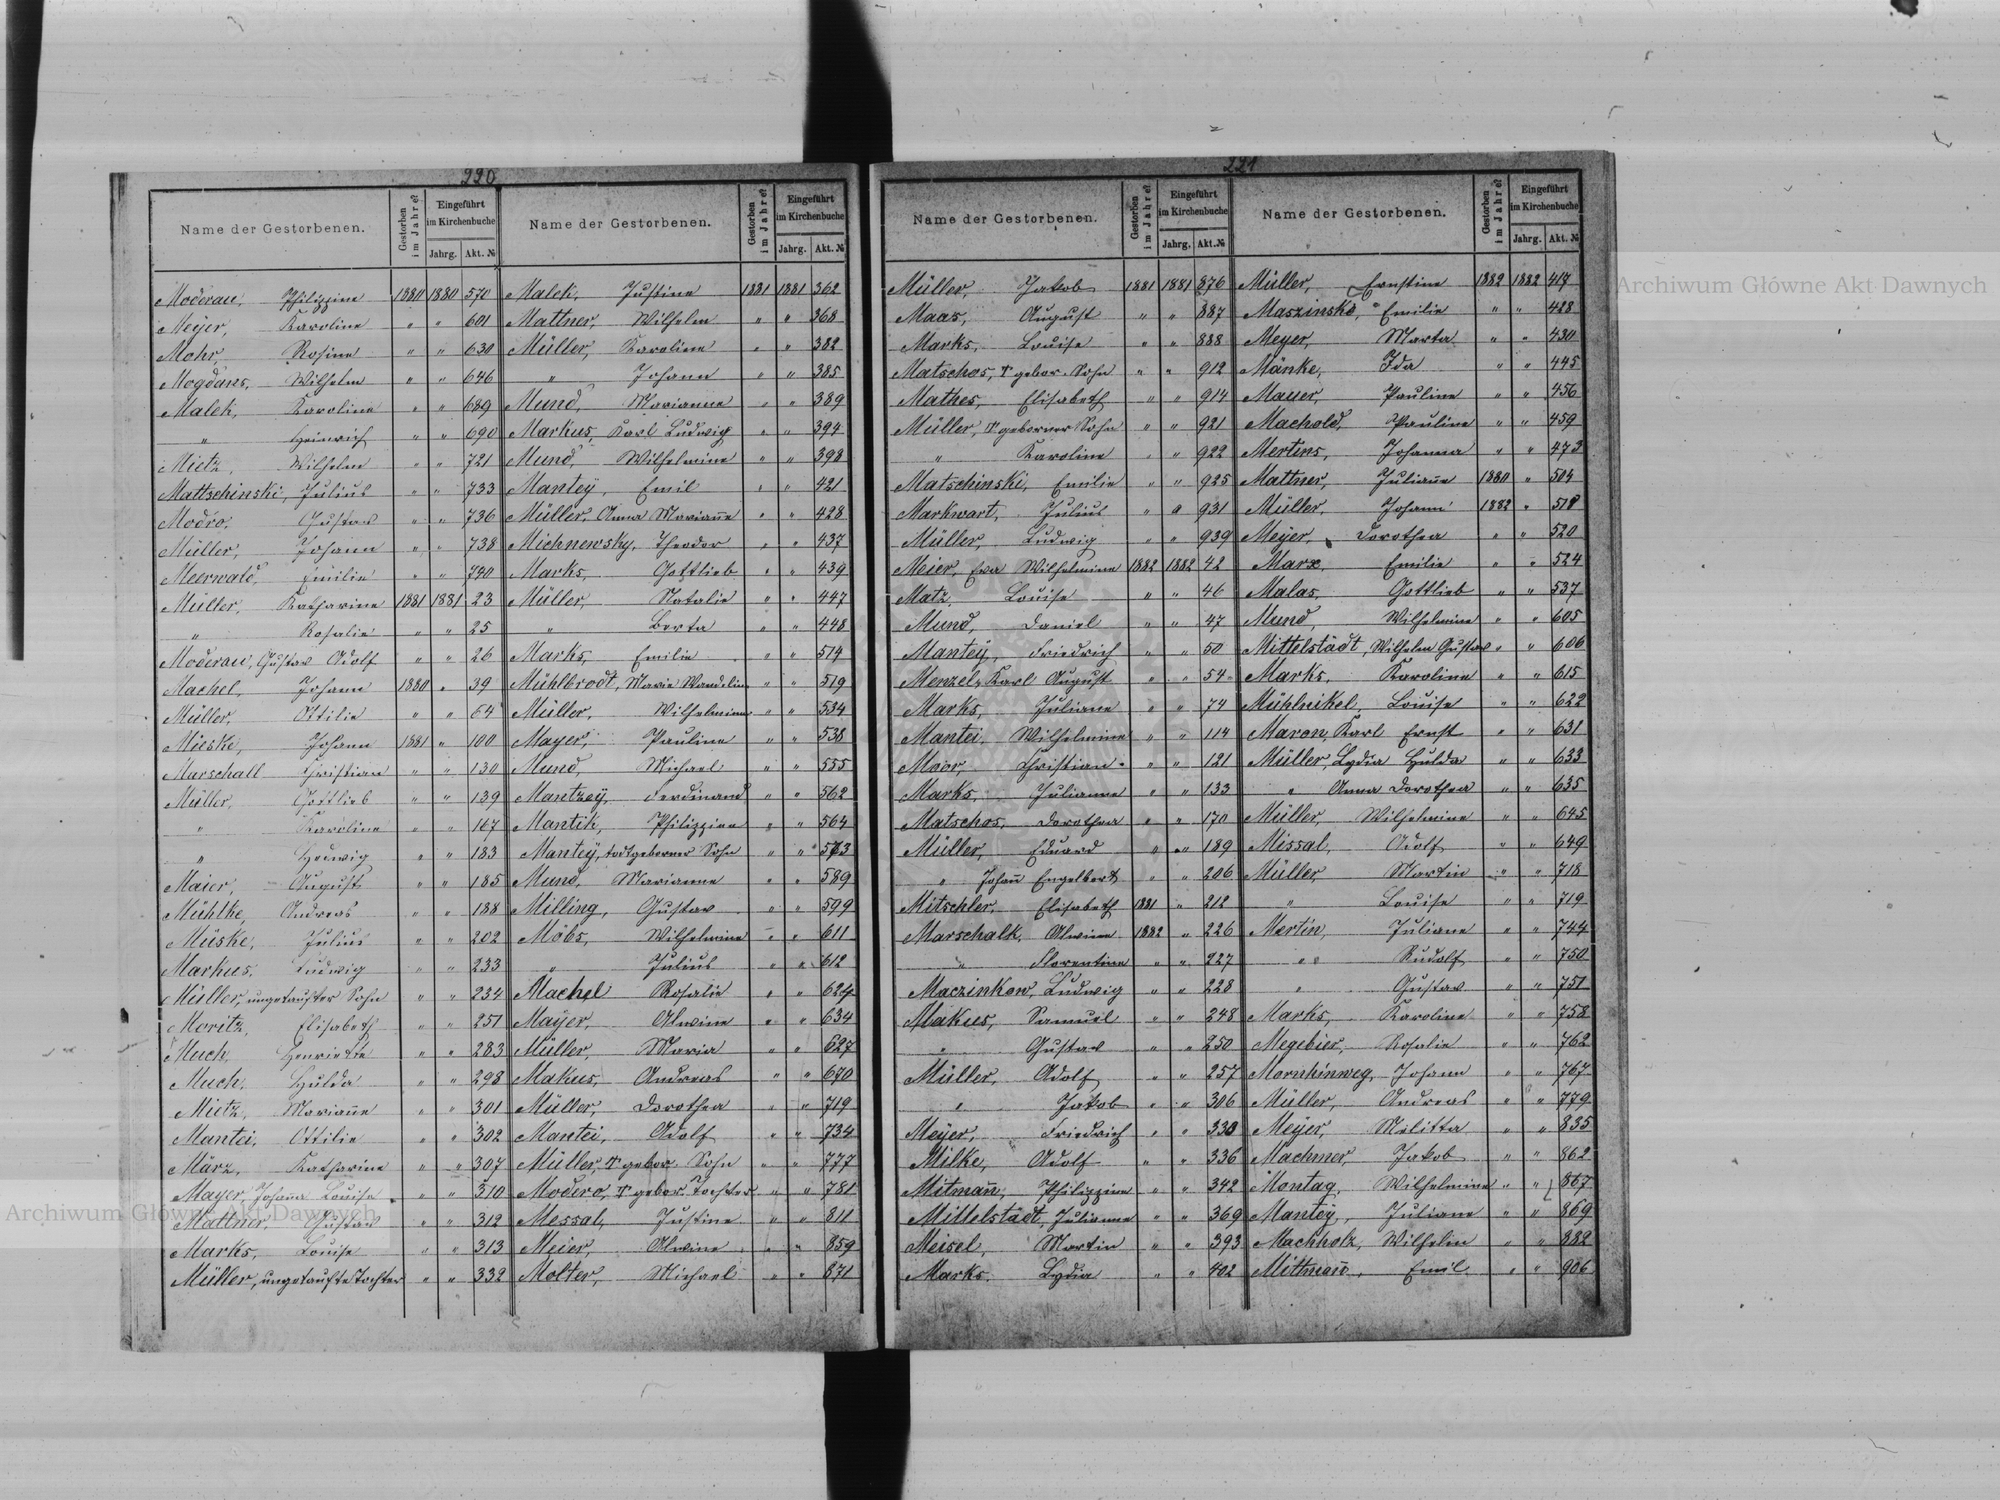 220
Name der Gestorbenen. Gestorben im Jahre Eingeführt im Kirchenbuche Jahrg. Akt. №
Moderau, Philippine 1880 1880 570
Meyer, Karoline " " 601
Mohr, Rosine " " 630
Mogdans, Wilhelm " " 646
Malek, Karoline " " 689
" Heinrich " " 690
Mietz, Wilhelm " " 721
Mattschinski, Julius " " 733
Modro, Gustav " " 736
Müller, Johann " " 738
Meerwald, Emilie " " 740
Müller, Katharine 1881 1881 23
" Rosalie " " 25
Moderau, Gustav Adolf " " 26
Machel, Johann 1880 " 39
Müller, Ottilie " " 64
Mieske, Johann 1881 " 100
Marschall Christian " " 130
Müller, Gottlieb " " 139
" Karoline " " 167
" Hedwig " " 183
Maier, August " " 185
Mühlke, Andreas " " 188
Müske, Julius " " 202
Markus, Ludwig " " 233
Müller, ungetaufter Sohn " " 234
Moritz, Elisabeth " " 251
Much, Henriette " " 283
Much, Hulda " " 298
Mietz, Mariane " " 301
Mantei, Ottilie " " 302
März, Katharine " " 307
Mayer, Johana Louise " " 310
Mattner, Gustav " " 312
Marks, Louise " " 313
Müller, ungetaufte Tochter " " 332
Name der Gestorbenen. Gestorben im Jahre Eingeführt im Kirchenbuche Jahrg. Akt. №
Malek, Justine 1881 1881 362
Mattner, Wilhelm " " 368
Müller, Karoline " " 382
" Johann " " 385
Mund, Marianne " " 389
Markus, Karl Ludwig " " 394
Mund, Wilhelmine " " 398
Manteÿ, Emil " " 421
Müller, Anna Mariane " " 428
Michnewsky, Theodor " " 437
Marks, Gottlieb " " 439
Müller, Natalie " " 447
" Berta " " 448
Marks, Emilie " " 519
Mühlbrodt, Marie Wandelin " " 519
Müller, Wilhelmine " " 534
Mayer, Pauline " " 538
Mund, Michael " " 555
Mantzeÿ, Ferdinand " " 562
Mantik, Philippine " " 564
Manteÿ, todtgeborner Sohn " " 573
Mund, Marianne " " 589
Milling, Gustav " " 599
Möbs, Wilhelmine " " 611
" Julius " " 612
Machel Rosalie " " 624
Maÿer, Alwine " " 634
Müller, Maria " " 627
Makus, Andreas " " 670
Müller, Dorothea " " 719
Mantei, Adolf " " 734
Müller, gebor. Sohn " " 777
Modero, gebor. Tochter " " 781
Messal, Justine " " 811
Meier, Alwine " " 859
Molter, Michael " " 871
221
Name der Gestorbenen. Gestorben im Jahre Eingeführt im Kirchenbuche Jahrg. Akt. №
Müller, Jakob 1881 1881 876
Maas, August " " 887
Marks, Louise " " 888
Matschos, gebor. Sohn " " 912
Mathes, Elisabeth " " 914
Müller, geborner Sohn " " 921
" Karoline " " 922
Matschinski, Emilie " " 925
Markwart, Julius " " 931
Müller, Ludwig " " 939
Meier, Eva Wilhelmine 1882 1882 42
Matz, Louise " " 46
Mund, Daniel " " 47
Manteÿ, Friedrich " " 50
Menzel, Karl August " " 54
Marks, Juliane " " 74
Mantei, Wilhelmine " " 114
Moor, Christian " " 121
Marks, Julianne " " 133
Matschos, Dorothea " " 170
Müller, Eduard " " 189
" Johan Engelbert " " 206
Mitschler, Elisabeth 1881 " 212
Marschalk, Alwine 1882 " 226
" Florentine " " 227
Maczinkow, Ludwig " " 228
Makus, Samuel " " 248
" Gustav " " 250
Müller, Adolf " " 257
" Jakob " " 306
Meyer, Friedrich " " 330
Milke, Adolf " " 336
Mitman, Philippine " " 342
Mittelstädt, Julianne " " 369
Meisel, Martin " " 393
Marks, Lydia " " 402
Name der Gestorbenen. Gestorben im Jahre Eingeführt im Kirchenbuche Jahrg. Akt. №
Müller, Ernstine 1882 1882 417
Maszinski, Emilie " " 428
Meyer, Marta " " 430
Mänke, Ida " " 445
Mauer, Pauline " " 456
Machold, Pauline " " 459
Mertins, Johanna " " 473
Mattner, Juliane 1880 " 504
Müller, Johann 1882 " 518
Meyer, Dorothea " " 520
Marx, Emilie " " 524
Malas, Gottlieb " " 537
Mund, Wilhelmine " " 605
Mittelstädt, Wilhelm Gustav " " 606
Marks, Karoline " " 615
Mühlnikel, Louise " " 622
Maron, Karl Ernst " " 631
Müller, Lydia Hulda " " 633
" Anna Dorothea " " 635
Müller Wilhelmine " " 645
Missal, Adolf " " 649
Müller, Martin " " 718
" Louise " " 719
Mertin, Juliane " " 744
" Rudolf " " 750
" Gustav " " 751
Marks, Karoline " " 758
Megebier, Rosalie " " 762
Mornhinweg, Johann " " 767
Müller, Andreas " " 779
Meyer, Melitta " " 835
Machner, Jakob " " 862
Montag, Wilhelmine " " 867
Manteÿ, Juliane " " 869
Machholz, Wilhelm " " 882
Mitman, Emil " " 906
Archiwum Główne Akt Dawnych
Archiwum Główne Akt Dawnych